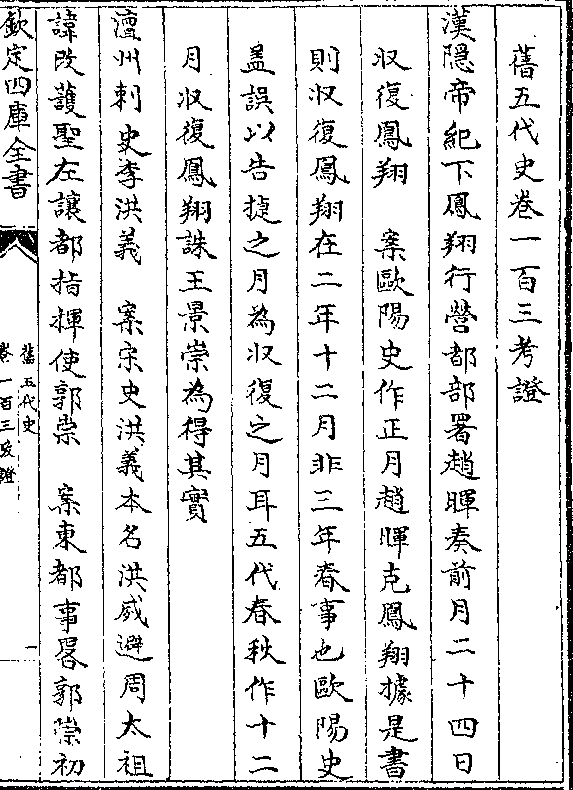 舊五代史卷一百三考證
漢隱帝紀下鳳翔行營都部署趙暉奏前月二十四日
收復鳳翔　案歐陽史作正月趙暉克鳳翔據是書
則收復鳳翔在二年十二月非三年春事也歐陽史
蓋誤以告捷之月為收復之月耳五代春秋作十二
月收復鳳翔誅王景崇為得其實
澶州刺史李洪義　案宋史洪義本名洪威避周太祖
諱改護聖左讓都指揮使郭崇　案東都事畧郭崇初
欽定四庫全書
舊五代史
卷一百三考證
一